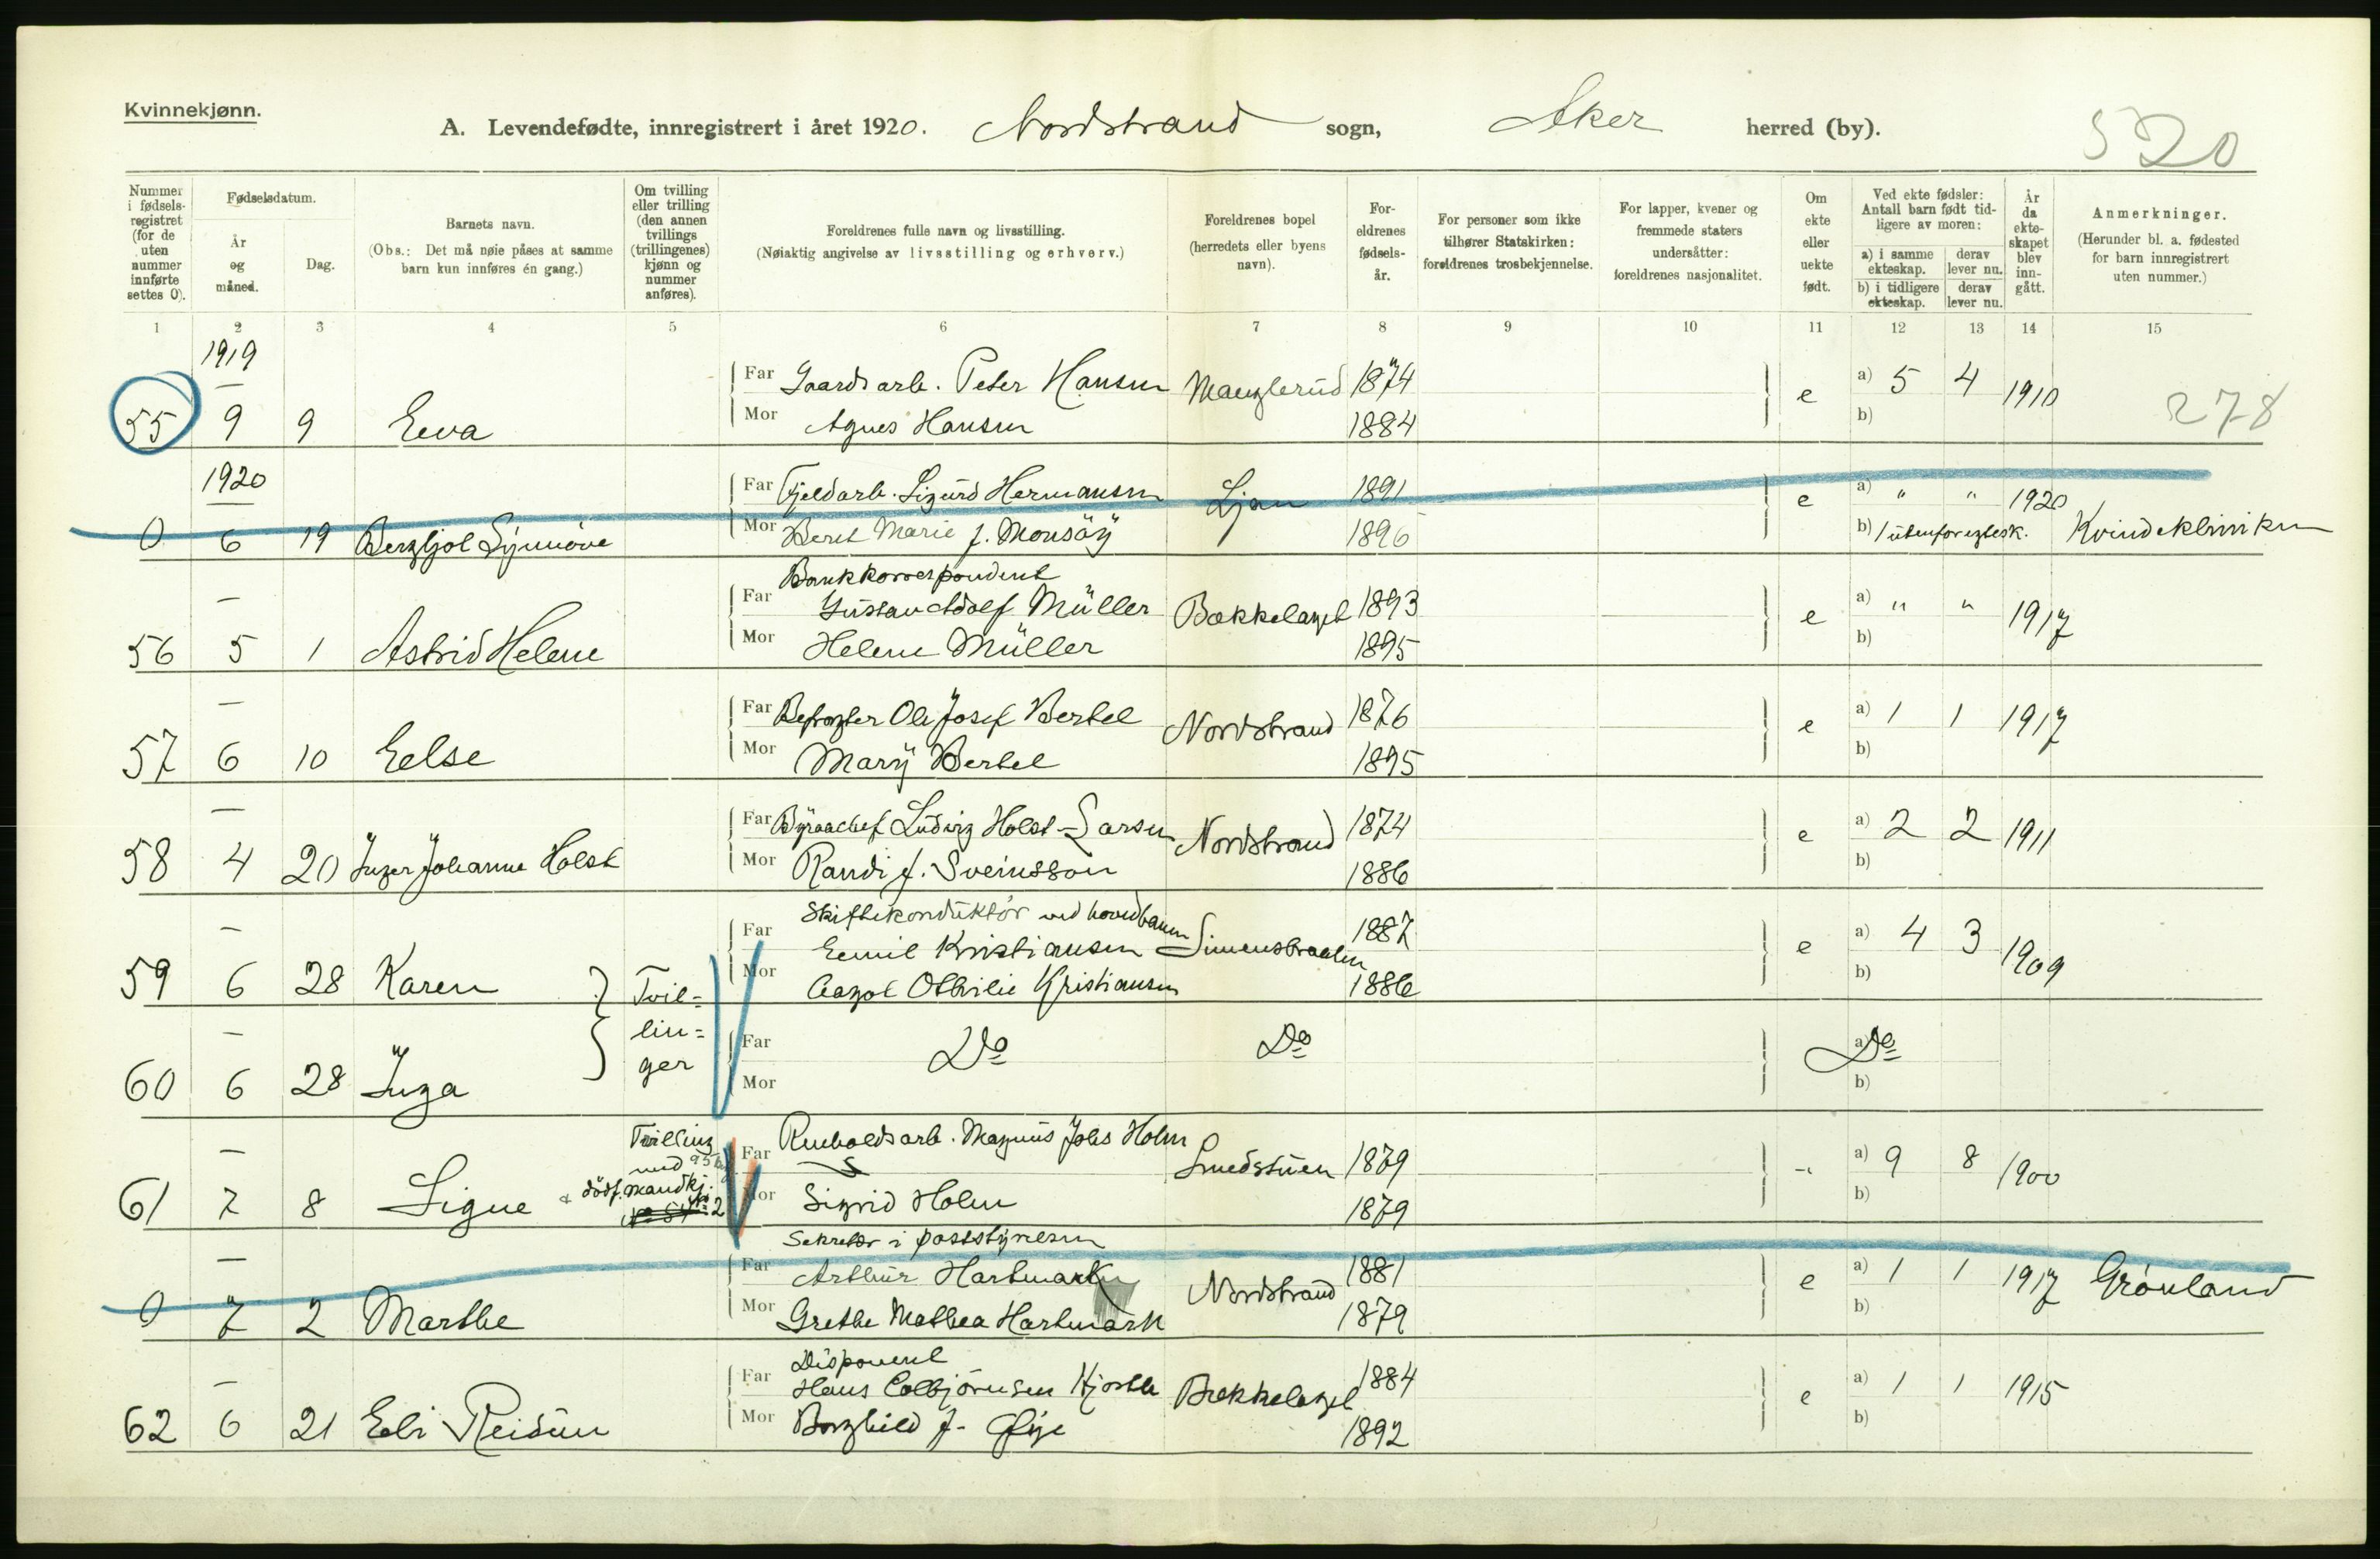 Kvinnekjønn.
A. Levendefødte, innregistrert i året 1920. Nordstrand sogn, Aker herred (by).
520
Nummer i fødsels-registret (for de uten nummer innførte settes 0).
Fødselsdatum.
År og måned.
Dag.
Barnets navn.
(Obs.: Det må nøie påses at samme barn kun innføres én gang.)
Om tvilling eller trilling (den annen tvillings (trillingenes) kjønn og nummer anføres).
Foreldrenes fulle navn og livsstilling.
(Nøiaktig angivelse av livsstilling og erhverv.)
Foreldrenes bopel (herredets eller byens navn).
For-eldrenes fødsels-år.
For personer som ikke tilhører Statskirken: foreldrenes trosbekjennelse.
For lapper, kvener og fremmede staters undersåtter: foreldrenes nasjonalitet.
Om ekte eller uekte født.
Ved ekte fødsler: Antall barn født tid-ligere av moren:
a) i samme ekteskap. derav lever nu.
b) i tidligere ekteskap. derav lever nu.
År da ekte-skapet blev inn-gått.
Anmerkninger.
(Herunder bl. a. fødested for barn innregistrert uten nummer.)
1 2 3 4 5 6 7 8 9 10 11 12 13 14 15
1919
55 9 9 Eva
Far Gaardsarb. Peter Hansen Manglerud 1874 e a) 5 4 1910 278
Mor Agnes Hansen 1884 b)
1920
0 6 19 Bergljot Synnöve
Far Fjeldarb. Sigurd Hermansen Ljan 1891 e a) " " 1920
Mor Beret Marie f. Monsöy 1896 b) 1 utenfor egtesk. Kvindeklinikken
—
56 5 1 Astrid Helene
Bankkorrespondent
Far Gustav Adolf Müller Bækkelaget 1893 e a) " " 1917
Mor Helene Müller 1895 b)
—
57 6 10 Else
Far Befragter Ole Josef Bertel Nordstrand 1876 e a) 1 1 1917
Mor Mary Bertel 1895 b)
—
58 4 20 Inger Johanne Holst
Far Byraachef Ludvig Holst-Larsen Nordstrand 1874 e a) 2 2 1911
Mor Randi f. Sveinsson 1886 b)
—
59 6 28 Karen Tvil=
Skiftekonduktör ved hovedbanen
Far Emil Kristiansen Simenstraaten 1887 e a) 4 3 1909
Mor Aagot Othilie Kristiansen 1886 b)
—
60 6 28 Inga lin= ger
Far Do Do Do a)
Mor b)
—
61 7 8 Signe Tvilling med dödf. mandkj. No 2
Far Renholdsarb. Magnus Johs Holm Smedstuen 1879 " a) 9 8 1900
Mor Sigrid Holm 1879 b)
—
0 7 2 Marthe
Sekretær i poststyrelsen
Far Arthur Hartmark Nordstrand 1881 e a) 1 1 1917 Grönland
Mor Grethe Mathea Hartmark 1879 b)
—
62 6 21 Eli Reidun
Disponent
Far Hans Colbjörnsen Hjorth Bækkelaget 1884 e a) 1 1 1915
Mor Borghild f. Öye 1892 b)